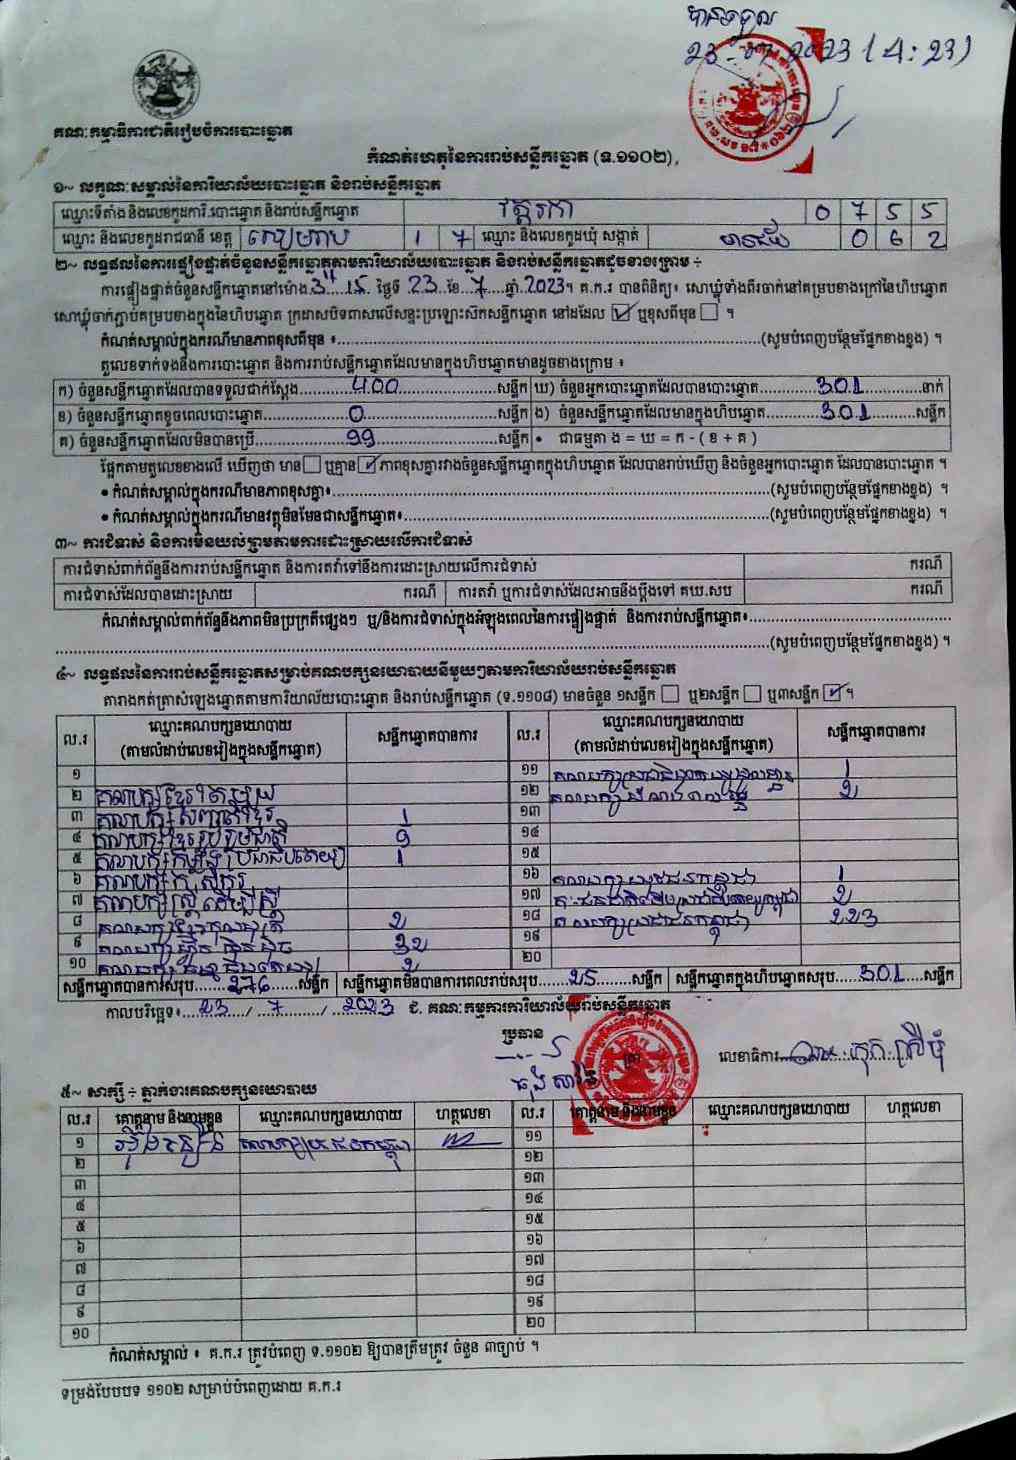 បានទទួល
23-07-2023 (4:23)
គណៈកម្មាធិការជាតិរៀបចំការបោះឆ្នោត
កំណត់ហេតុនៃការរាប់សន្លឹកឆ្នោត (ទ.១១០២),
១~ លក្ខណៈសម្គាល់នៃការិយាល័យបោះឆ្នោត និងរាប់សន្លឹកឆ្នោត
ឈ្មោះទីតាំង និងលេខកូដការិ.បោះឆ្នោត និងរាប់សន្លឹកឆ្នោត វត្តរកា 0 7 5 5
ឈ្មោះ និងលេខកូដរាជធានី ខេត្ត សៀមរាប 1 7 ឈ្មោះ និងលេខកូដឃុំ សង្កាត់ មានជ័យ 0 6 2
២~ លទ្ធផលនៃការផ្ទៀងផ្ទាត់ចំនួនសន្លឹកឆ្នោតតាមការិយាល័យបោះឆ្នោត និងរាប់សន្លឹកឆ្នោតដូចខាងក្រោម ÷
ការផ្ទៀងផ្ទាត់ចំនួនសន្លឹកឆ្នោតនៅម៉ោង 3:15 ថ្ងៃទី 23 ខែ 7 ឆ្នាំ 2023។ គ.ក.រ បានពិនិត្យ៖ សោឃ្លុំទាំងពីរចាក់នៅគម្របខាងក្រៅនៃហិបឆ្នោត
សោឃ្លុំចាក់ភ្ជាប់គម្របខាងក្នុងនៃហិបឆ្នោត ក្រដាសបិទពាសលើសន្ទះប្រឡោះស៊កសន្លឹកឆ្នោត នៅដដែល ☑ ឬខុសពីមុន ☐ ។
កំណត់សម្គាល់ក្នុងករណីមានភាពខុសពីមុន ៖ (សូមបំពេញបន្ថែមផ្នែកខាងខ្នង) ។
តួលេខទាក់ទងនឹងការបោះឆ្នោត និងការរាប់សន្លឹកឆ្នោតដែលមានក្នុងហិបឆ្នោតមានដូចខាងក្រោម ៖
ក) ចំនួនសន្លឹកឆ្នោតដែលបានទទួលជាក់ស្តែង 400 សន្លឹក ឃ) ចំនួនអ្នកបោះឆ្នោតដែលបានបោះឆ្នោត 301 នាក់
ខ) ចំនួនសន្លឹកឆ្នោតខូចពេលបោះឆ្នោត 0 សន្លឹក ង) ចំនួនសន្លឹកឆ្នោតដែលមានក្នុងហិបឆ្នោត 301 សន្លឹក
គ) ចំនួនសន្លឹកឆ្នោតដែលមិនបានប្រើ 99 សន្លឹក • ជាធម្មតា ង = ឃ = ក - ( ខ + គ )
ផ្អែកតាមតួលេខខាងលើ ឃើញថា មាន ☐ ឬគ្មាន ☑ ភាពខុសគ្នារវាងចំនួនសន្លឹកឆ្នោតក្នុងហិបឆ្នោត ដែលបានរាប់ឃើញ និងចំនួនអ្នកបោះឆ្នោត ដែលបានបោះឆ្នោត ។
• កំណត់សម្គាល់ក្នុងករណីមានភាពខុសគ្នា៖ (សូមបំពេញបន្ថែមផ្នែកខាងខ្នង) ។
• កំណត់សម្គាល់ក្នុងករណីមានវត្ថុមិនមែនជាសន្លឹកឆ្នោត៖ (សូមបំពេញបន្ថែមផ្នែកខាងខ្នង) ។
៣~ ការជំទាស់ និងការមិនយល់ព្រមតាមការដោះស្រាយលើការជំទាស់
ការជំទាស់ពាក់ព័ន្ធនឹងការរាប់សន្លឹកឆ្នោត និងការតវ៉ាទៅនឹងការដោះស្រាយលើការជំទាស់ ករណី
ការជំទាស់ដែលបានដោះស្រាយ ករណី ការតវ៉ា ឬការជំទាស់ដែលអាចនឹងប្តឹងទៅ គឃ.សប ករណី
កំណត់សម្គាល់ពាក់ព័ន្ធនឹងភាពមិនប្រក្រតីផ្សេងៗ ឬ/និងការជំទាស់ក្នុងអំឡុងពេលនៃការផ្ទៀងផ្ទាត់ និងការរាប់សន្លឹកឆ្នោត៖
(សូមបំពេញបន្ថែមផ្នែកខាងខ្នង) ។
៤~ លទ្ធផលនៃការរាប់សន្លឹកឆ្នោតសម្រាប់គណបក្សនយោបាយនីមួយៗតាមការិយាល័យរាប់សន្លឹកឆ្នោត
តារាងកត់ត្រាសំឡេងឆ្នោតតាមការិយាល័យបោះឆ្នោត និងរាប់សន្លឹកឆ្នោត (ទ.១១០៨) មានចំនួន ១សន្លឹក ☐ ឬ២សន្លឹក ☐ ឬ៣សន្លឹក ☑ ។
ល.រ ឈ្មោះគណបក្សនយោបាយ (តាមលំដាប់លេខរៀងក្នុងសន្លឹកឆ្នោត) សន្លឹកឆ្នោតបានការ ល.រ ឈ្មោះគណបក្សនយោបាយ (តាមលំដាប់លេខរៀងក្នុងសន្លឹកឆ្នោត) សន្លឹកឆ្នោតបានការ
១ ១១ 1
២ គណបក្សខ្មែរ ១២ 2
៣ គណបក្សសញ្ជាតិខ្មែរ 1 ១៣
៤ គណបក្សខ្មែររួបរួមជាតិ 9 ១៤
៥ គណបក្សកម្លាំងប្រជាធិបតេយ្យ 1 ១៥
៦ គណបក្សកសិករ ១៦ គណបក្សយុវជនកម្ពុជា 1
៧ គណបក្សស្ត្រីដើម្បីស្ត្រី ១៧ 2
៨ 2 ១៨ គណបក្សប្រជាជនកម្ពុជា 223
៩ គណបក្សហ៊្វុនស៊ិនប៉ិច 32 ១៩
១០ 2 ២០
សន្លឹកឆ្នោតបានការសរុប 276 សន្លឹក សន្លឹកឆ្នោតមិនបានការពេលរាប់សរុប 25 សន្លឹក សន្លឹកឆ្នោតក្នុងហិបឆ្នោតសរុប 301 សន្លឹក
កាលបរិច្ឆេទ៖ 23 / 7 / 2023 ជ. គណៈកម្មការការិយាល័យរាប់សន្លឹកឆ្នោត
ប្រធាន
លេខាធិការ
៥~ សាក្សី ÷ ភ្នាក់ងារគណបក្សនយោបាយ
ល.រ គោត្តនាម និងនាមខ្លួន ឈ្មោះគណបក្សនយោបាយ ហត្ថលេខា ល.រ គោត្តនាម និងនាមខ្លួន ឈ្មោះគណបក្សនយោបាយ ហត្ថលេខា
១ គណបក្សប្រជាជនកម្ពុជា ១១
២ ១២
៣ ១៣
៤ ១៤
៥ ១៥
៦ ១៦
៧ ១៧
៨ ១៨
៩ ១៩
១០ ២០
កំណត់សម្គាល់ ៖ គ.ក.រ ត្រូវបំពេញ ទ.១១០២ ឱ្យបានត្រឹមត្រូវ ចំនួន ៣ច្បាប់ ។
ទម្រង់បែបបទ ១១០២ សម្រាប់បំពេញដោយ គ.ក.រ